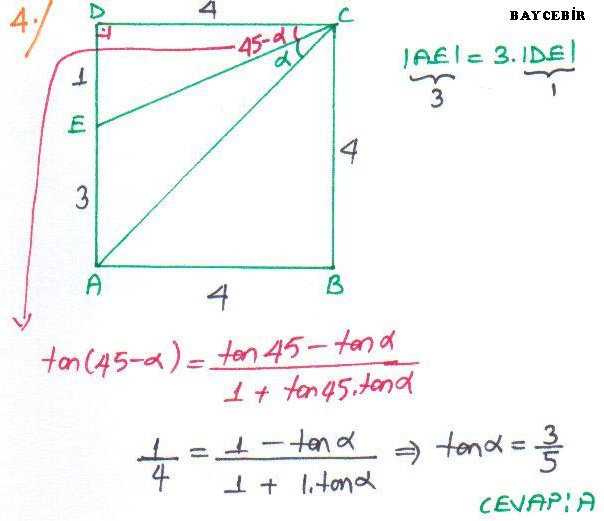 4./
BAYCEBİR
D 4 C
45-α
α
1
E
3
4
A B
4
|AE| = 3.|DE|
3 1
tan(45-α) = (tan45 - tanα) / (1 + tan45.tanα)
1/4 = (1 - tanα) / (1 + 1.tanα) ⇒ tanα = 3/5
CEVAP: A